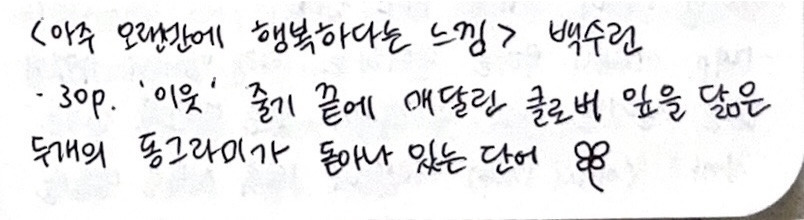 <아주 오랜만에 행복하다는 느낌> 백수린
· 30p. '이웃' 줄기 끝에 매달린 클로버 잎을 닮은
두개의 동그라미가 돋아나 있는 단어